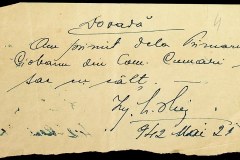 Dovadă
Am primit dela Primar
Ciobanu din Com. Cunari
sac cu
942 Mai 21